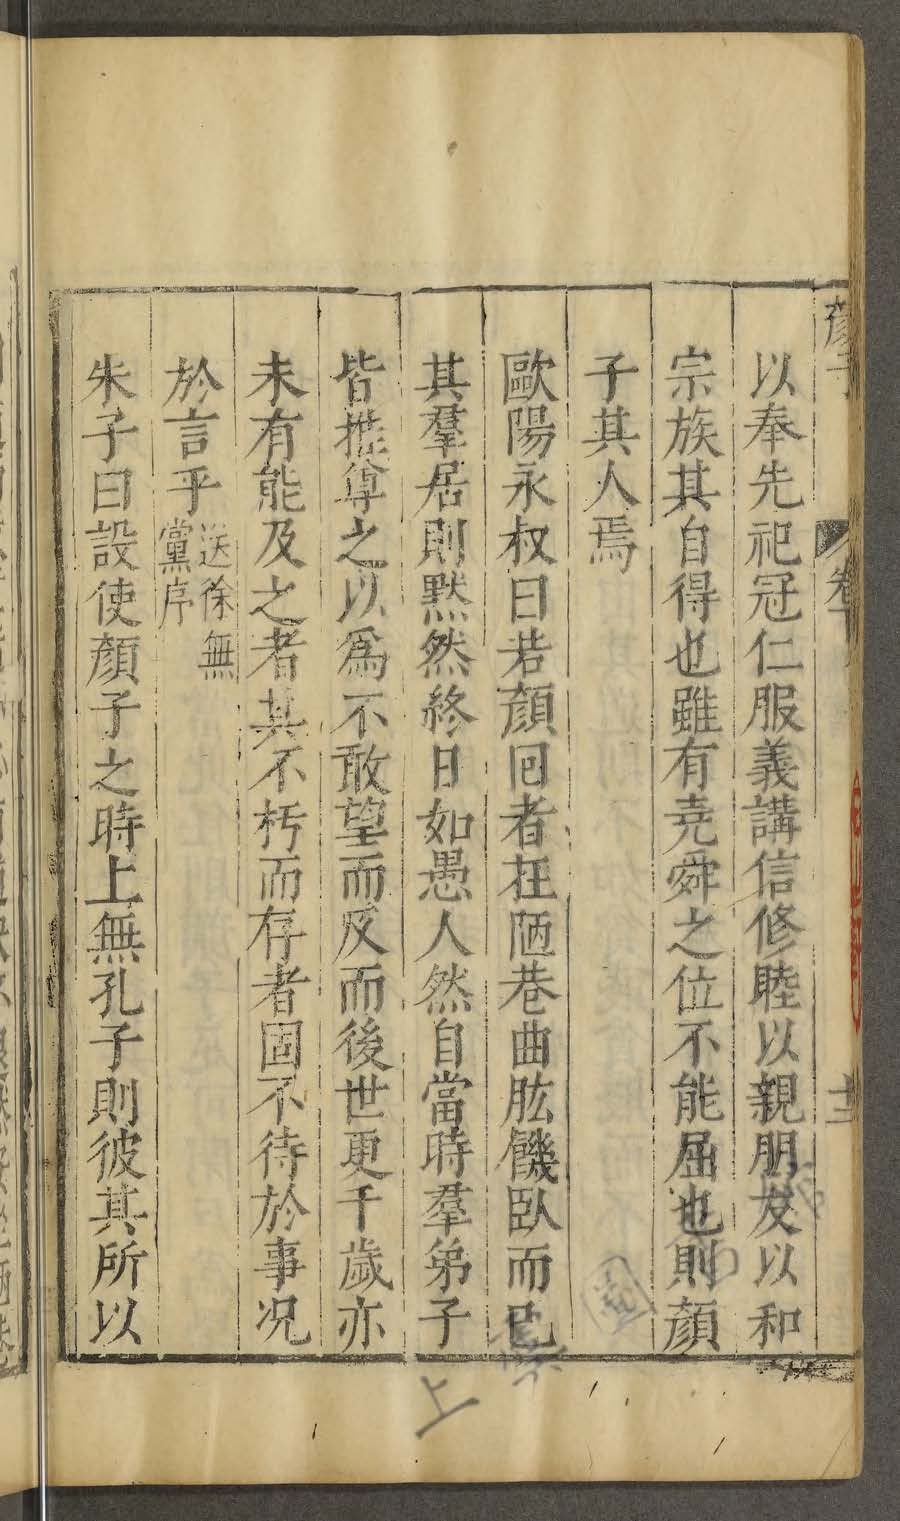 以奉先祀冠仁服義講信修睦以親朋友以和
宗族其自得也雖有堯舜之位不能屈也則顏
子其人焉
歐陽永叔曰若顏回者在陋巷曲肱饑臥而已
其羣居則默然終日如愚人然自當時羣弟子
皆推尊之以爲不敢望而反而後世更千歲亦
未有能及之者其不朽而存者固不待於事况
於言乎送徐無
黨序
朱子曰設使顏子之時上無孔子則彼其所以